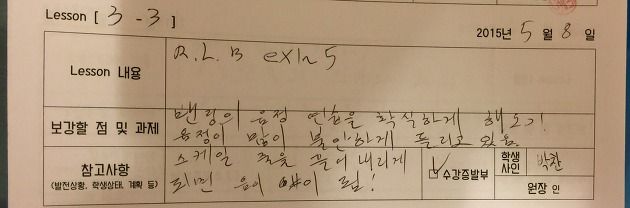 Lesson [ 3 - 3 ]
2015년 5 월 8 일
Lesson 내용
R.L.B ex1~5
보강할 점 및 과제
밴딩이 음정 연습을 확실하게 해오기!
음정이 많이 불안하게 들리고 있음.
참고사항
(발전상황, 학생상태, 계획 등)
스케일 쭈욱 끌어 내리게
되면 음이 많이 뜸!
수강증발부
학생
사인
박찬
원장 인